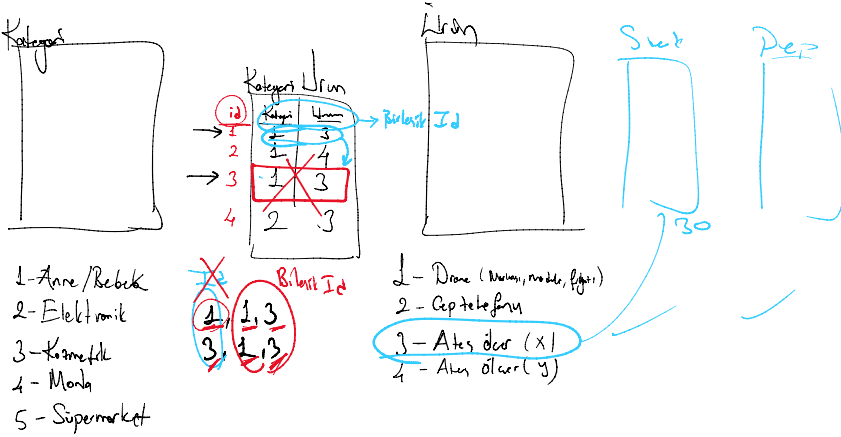 Kategori
Kategori Urun
id Kategori Urun
Bileşik Id
1 1 3
2 1 4
3 1 3
4 2 3
Ürün
Stok
Dep
30
1-Anne/Bebek
2-Elektronik
3-Kozmetik
4-Moda
5-Süpermarket
Id
Bileşik Id
1, 1, 3
3, 1, 3
1-Drone (Markası, modeli, fiyatı)
2-Cep telefonu
3-Ateş ölçer (X)
4-Ateş ölçer (y)